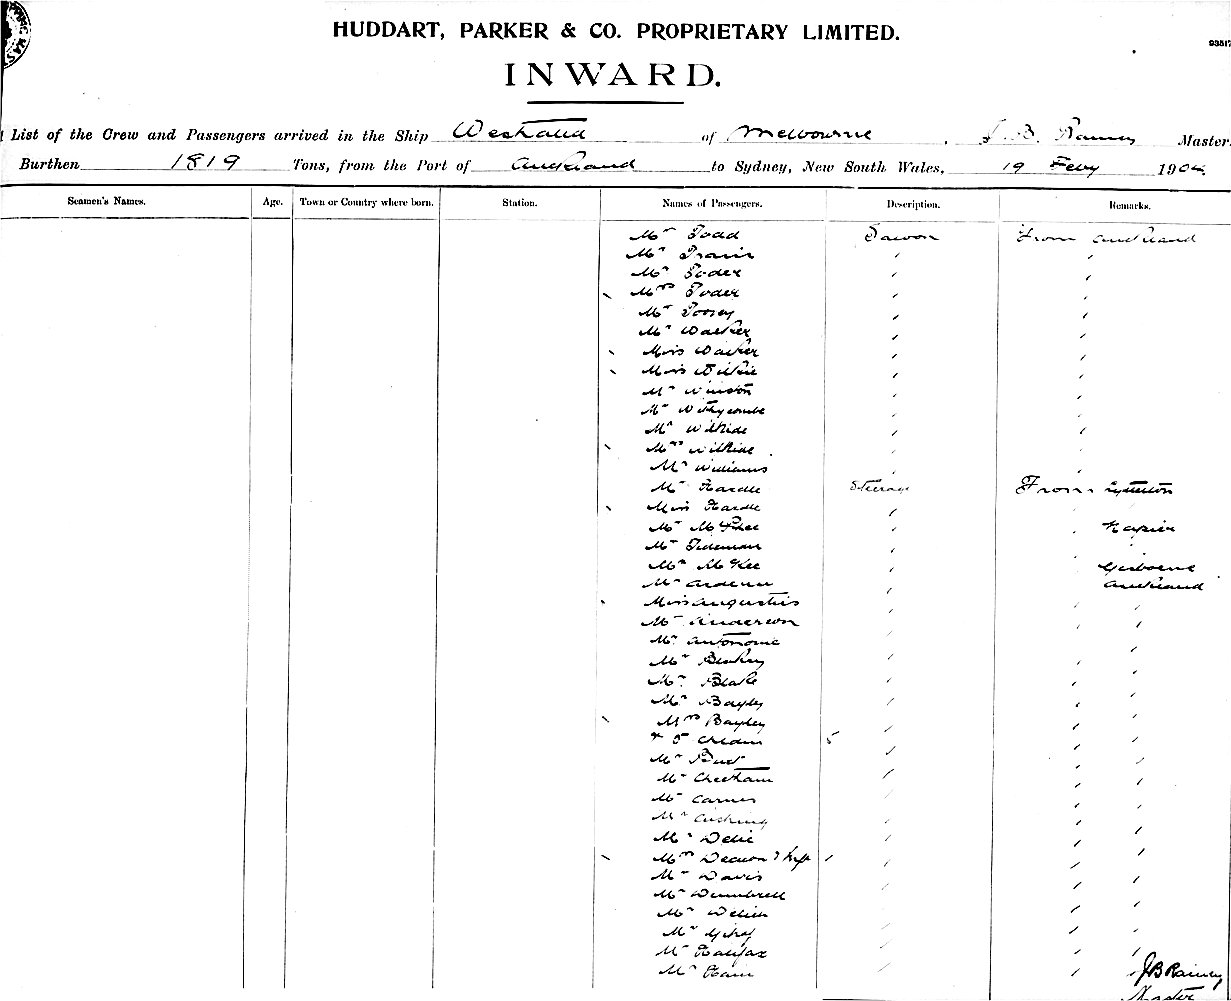 HUDDART, PARKER & CO. PROPRIETARY LIMITED.
93517
INWARD.
List of the Crew and Passengers arrived in the Ship Westralia of Melbourne, J. B. Rainey Master
Burthen 1819 Tons, from the Port of Auckland to Sydney, New South Wales, 19 Feby 1904
Seamen's Names. Age. Town or Country where born. Station. Names of Passengers. Description. Remarks.
Mr Todd Saloon From Auckland
Mr Travis
Mr Yoder
Mrs Yoder
Mr
Mr Walker
Miss Walker
Miss Wilkie
Mr Winston
Mr Withycombe
Mr
Mrs
Mr Williams
Mr Hardle Steerage From Lyttelton
Miss Hardle
Mr McPhee Napier
Mr Tideman
Mr McKee Gisborne
Mr Auckland
Miss Augustus
Mr Anderson
Mr
Mr
Mr Blake
Mr Bayley
Mrs Bayley
& 5 Children 5
Mr
Mr Cheetham
Mr
Mr Cushing
Mr
Mrs
Mr Davis
Mr
Mr
Mr
Mr Halifax
Mr
JB Rainey
Master